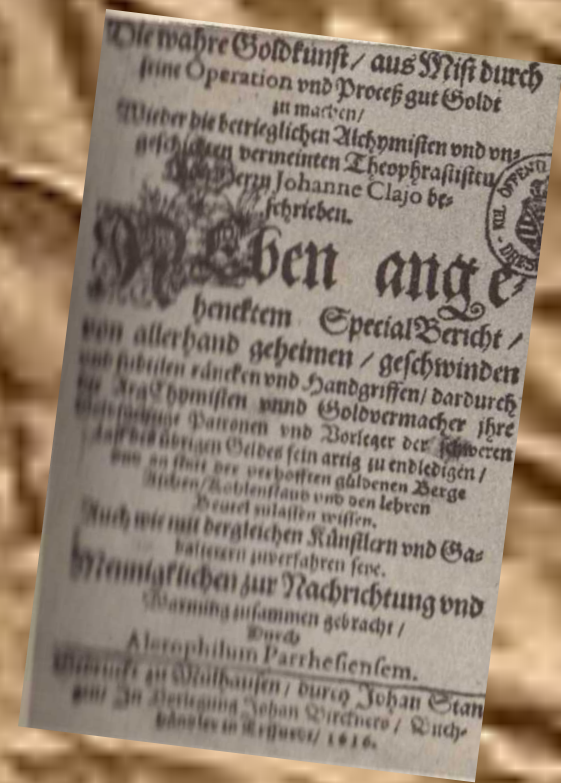 Die wahre Goldkunst / aus Mist durch
seine Operation vnd Proceß gut Goldt
zu machen /
Wieder die betrieglichen Alchymisten vnd vn-
geschickten vermeinten Theophrastisten
Herrn Johanne Clajo be-
schrieben.
Neben ange-
hencktem Special Bericht /
von allerhand geheimen / geschwinden
vnd subtilen räncken vnd Handgriffen / dardurch
die ArgChymisten vnnd Goldvermacher jhre
Patronen vnd Vorleger der schweren
Last des übrigen Geldes fein artig zu endledigen /
vnd an statt der verhofften güldenen Berge
Aschen / Kohlenstaub vnd den lehren
Beutel zulassen wissen.
Auch wie mit dergleichen Künstlern vnd Ga-
zuverfahren seye.
Menniglichen zur Nachrichtung vnd
Warnung zusammen gebracht /
Durch
Alerophilum Parrhesiensem.
Gedruckt zu Mülhausen / durch Johan Stan
In Verlegung Johan Birckners / Buch-
händler in Erffurt / 1616.